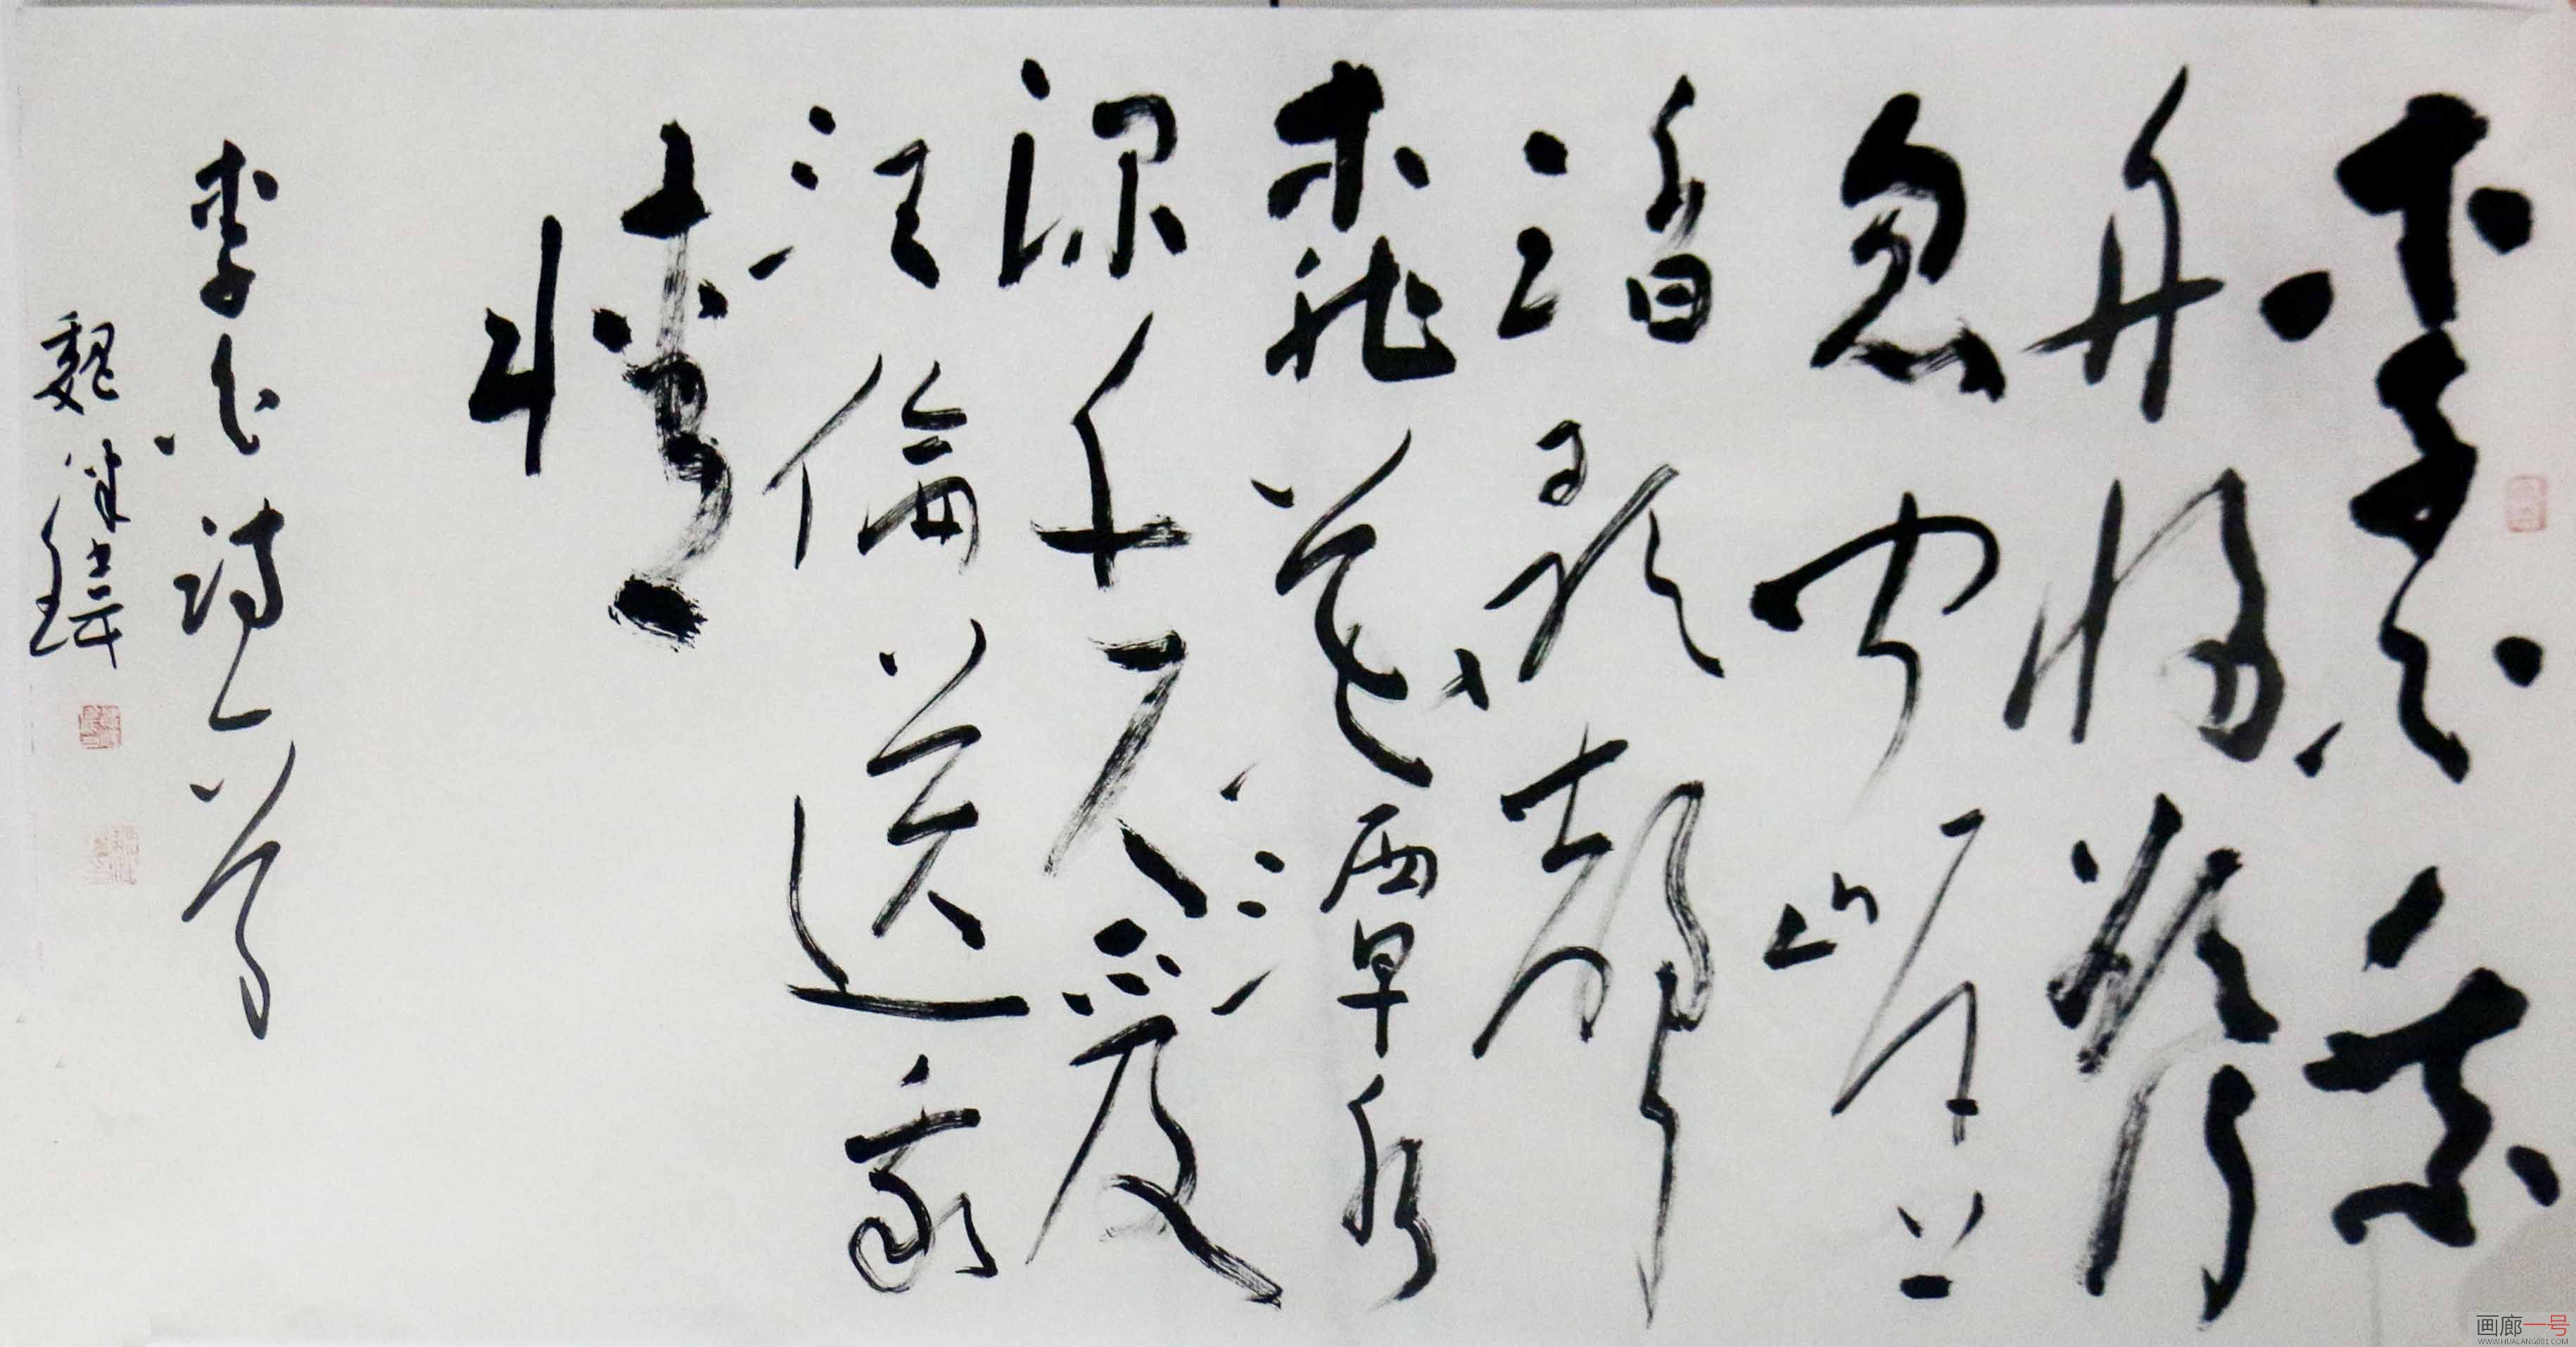 李白乘
舟將欲行
忽聞岸上
踏歌聲
桃花潭水
深千尺不及
汪倫送我
情
李白詩一首
魏
画廊一号
WWW.HUALANG001.COM